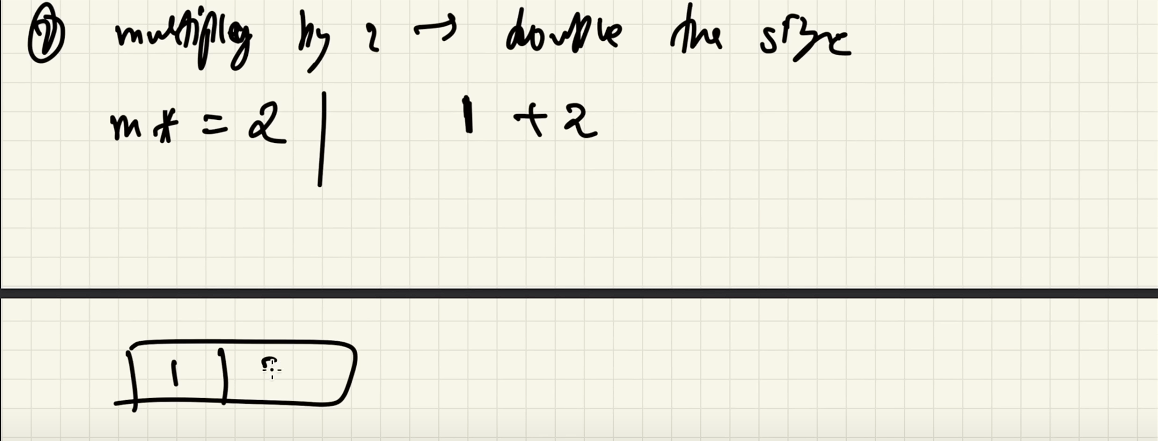 ② multiply by 2 → double the size
m * = 2 | 1 + 2
1